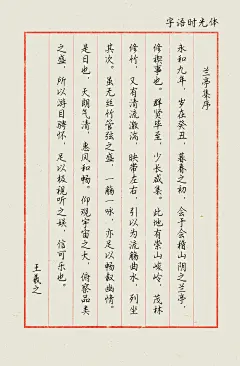 字语时光体
兰亭集序
永和九年，岁在癸丑，暮春之初，会于会稽山阴之兰亭，
修禊事也。群贤毕至，少长咸集。此地有崇山峻岭，茂林
修竹，又有清流激湍，映带左右，引以为流觞曲水，列坐
其次。虽无丝竹管弦之盛，一觞一咏，亦足以畅叙幽情。
是日也，天朗气清，惠风和畅。仰观宇宙之大，俯察品类
之盛，所以游目骋怀，足以极视听之娱，信可乐也。
王羲之